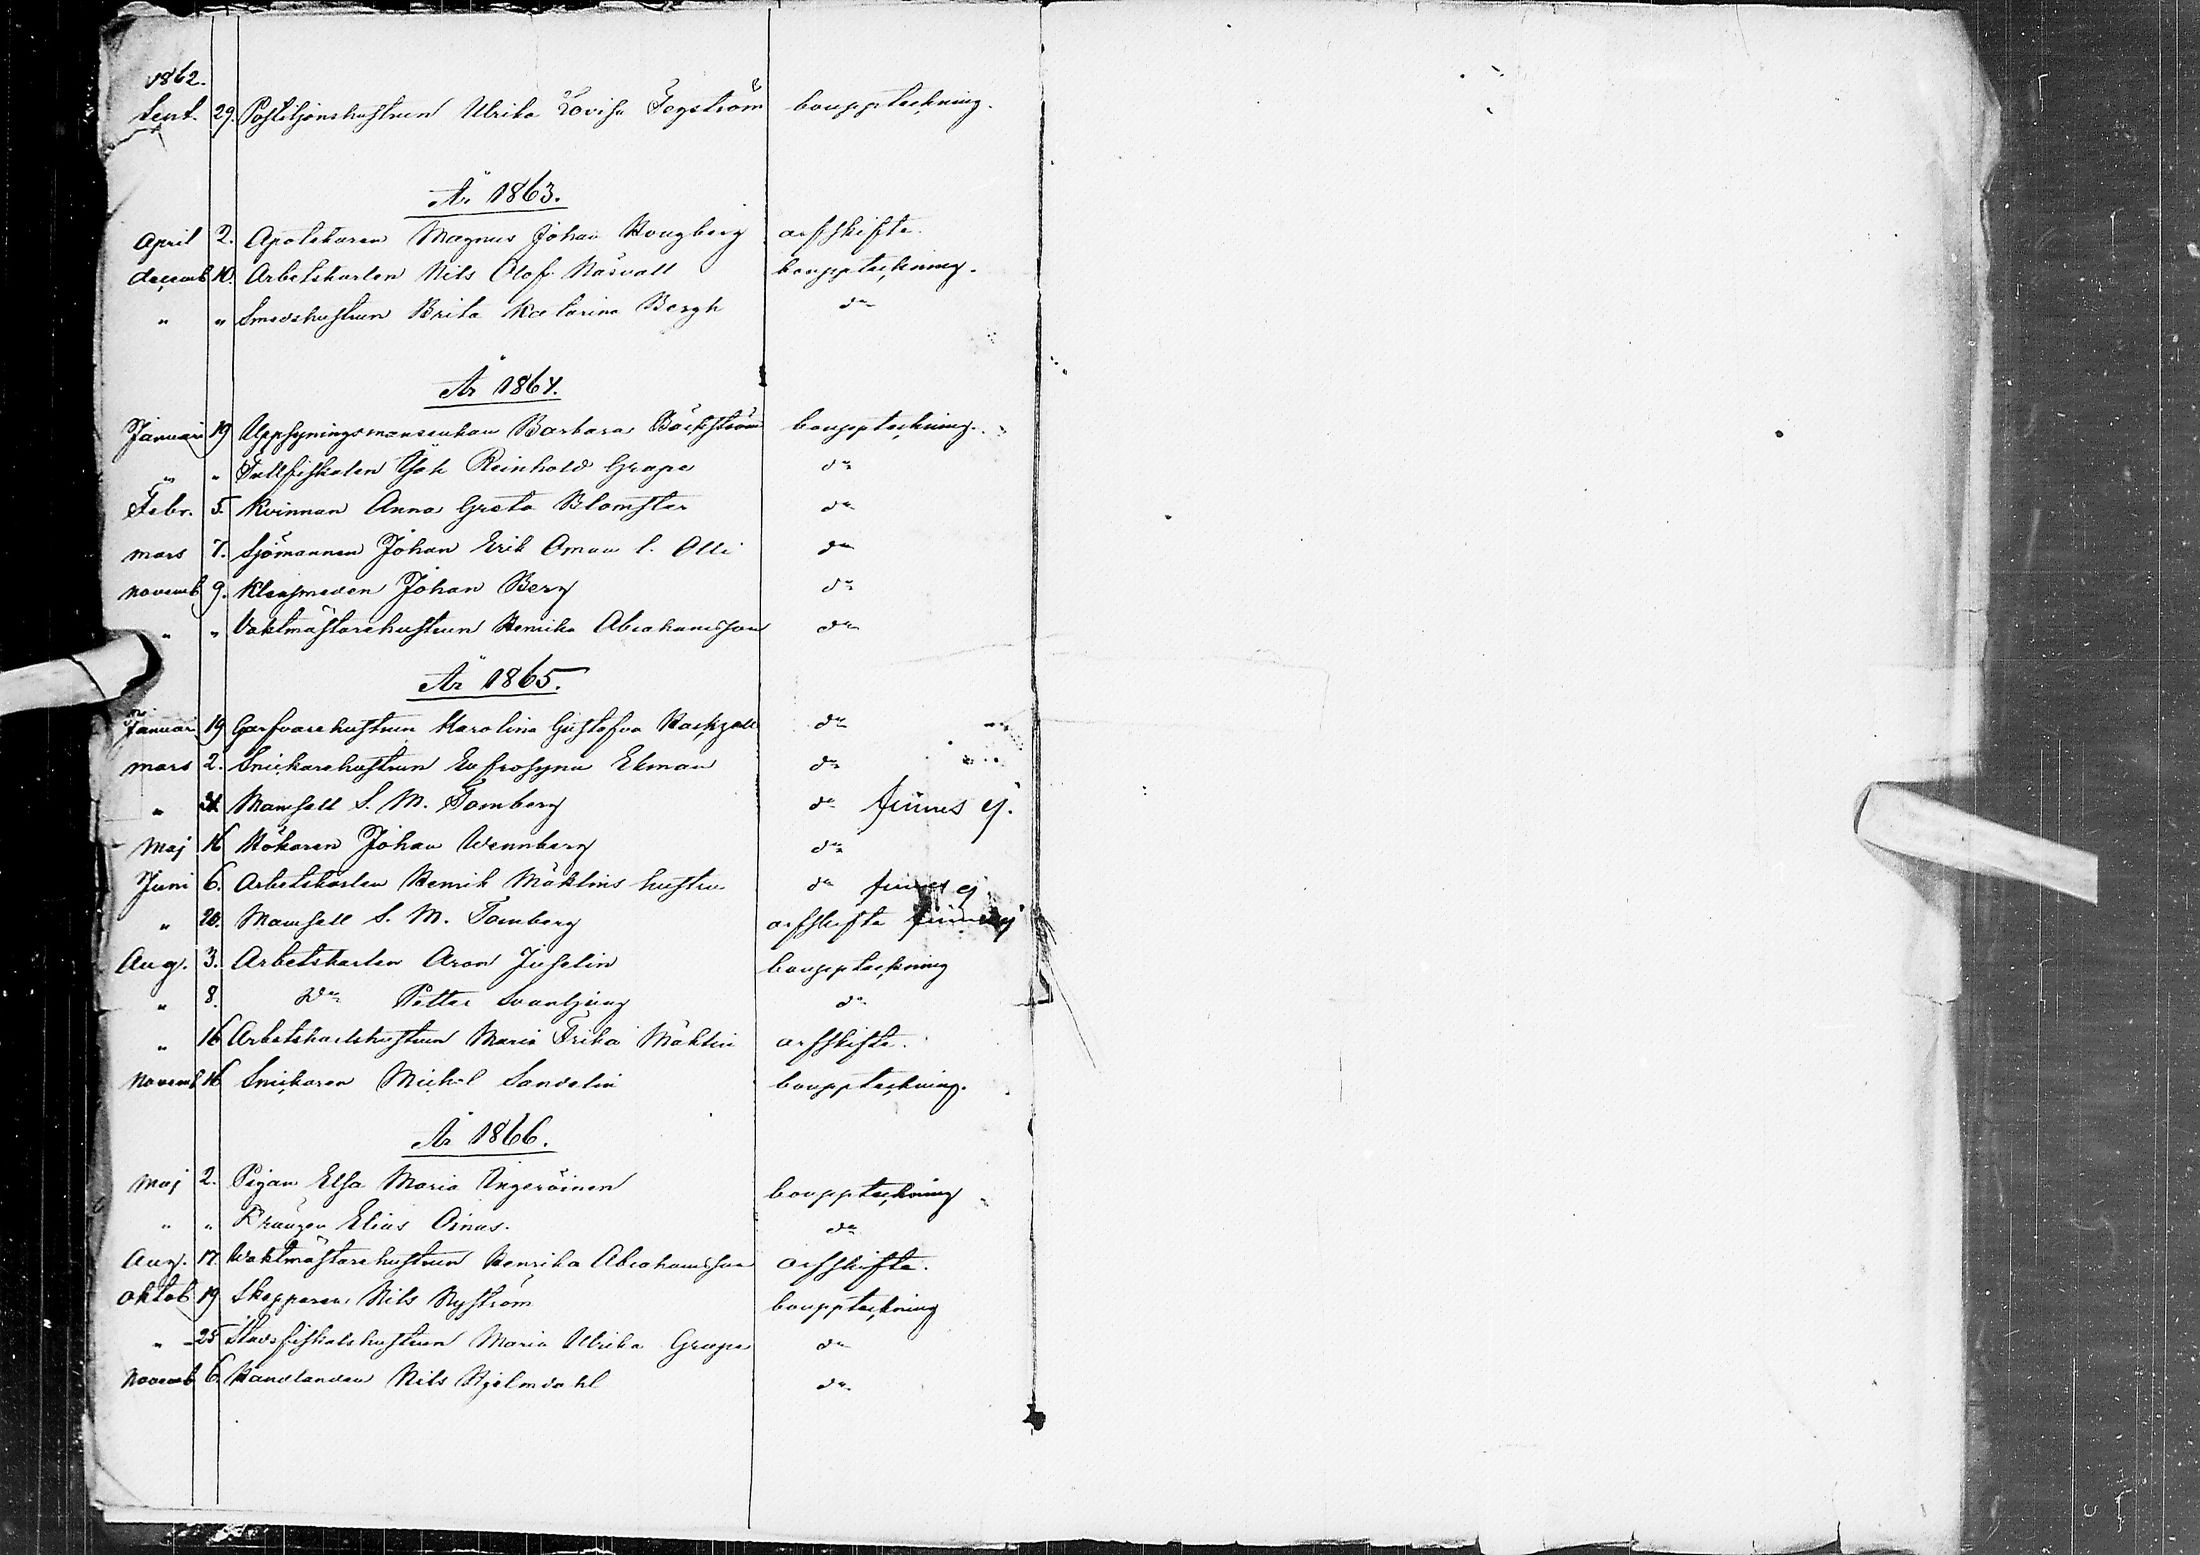 1862.
Sept. 29. Postiljonshustrun Ulrika Lovisa Fegström bouppteckning.
År 1863.
April 2. Apotekaren Magnus Johan Hougberg arfskifte.
decemb 10. Arbetskarlen Nils Olof Näsvall bouppteckning.
" " Smedshustrun Brita Katarina Bergh do
År 1864.
Januari 19 Uppsyningsmansenkan Barbara Bäckström bouppteckning.
" " Tullfiskalen Isak Reinhold Grape do
Febr. 5. Kvinnan Anna Greta Blomster do
mars 7. Sjömannen Johan Erik Öman l. Olli do
novemb 9. Klensmeden Johan Berg do
" " Vaktmästarehustrun Henrika Abrahamsson do
År 1865.
Januari 19 Garfvarehustrun Karolina Gustafva do
mars 2. Snickarehustrun Eufrosyna Ekman do
" 31. Mamsell S. M. Tornberg do finnes ej.
Maj 16 Hökaren Johan Wennberg do
Juni 6. Arbetskarlen Henrik Mäklins hustru do finnes ej
" 20. Mamsell S. M. Tornberg arfskifte finnes ej
Aug. 3. Arbetskarlen Aron Juselin bouppteckning
" 8. Do Petter Svanljung do
" 16 Arbetskarlshustrun Maria Frika Mäklin arfskifte.
Novemb 16 Snickaren Michel Sandelin bouppteckning.
År 1866.
Maj 2. Pigan Elsa Maria Ingeröinen bouppteckning
" " Drängen Elias Oinas. do
Aug. 17. Waktmästarehustrun Henrika Abrahamsson arfskifte.
Oktob 19 Skepparen Nils Nyström bouppteckning
" 25 Stadsfiskalshustrun Maria Ulrika Grape do
Novemb 6. Handlanden Nils Hjelmdahl do